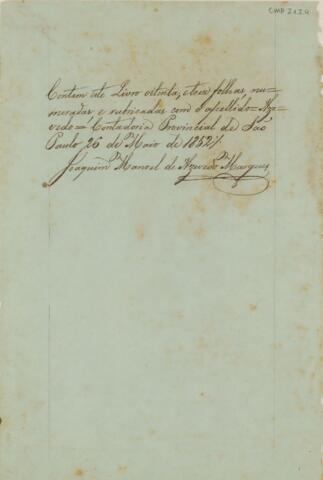 CMP 2.1.2.9
Contem este Livro oitenta, e tres folhas nu=
meradas e rubricadas com o apellido= Aze=
vedo= Contadoria Provincial de São
Paulo 26 de Maio de 1852.
Joaquim Manoel de Azevedo Marques